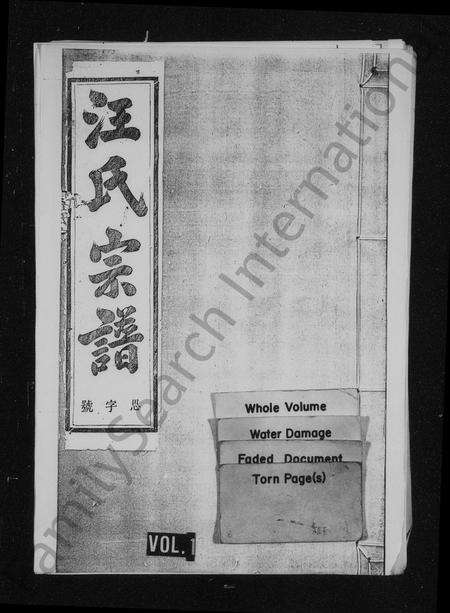 汪氏宗譜
恩字號
Whole Volume
Water Damage
Faded Document
Torn Page(s)
VOL. 1
FamilySearch International